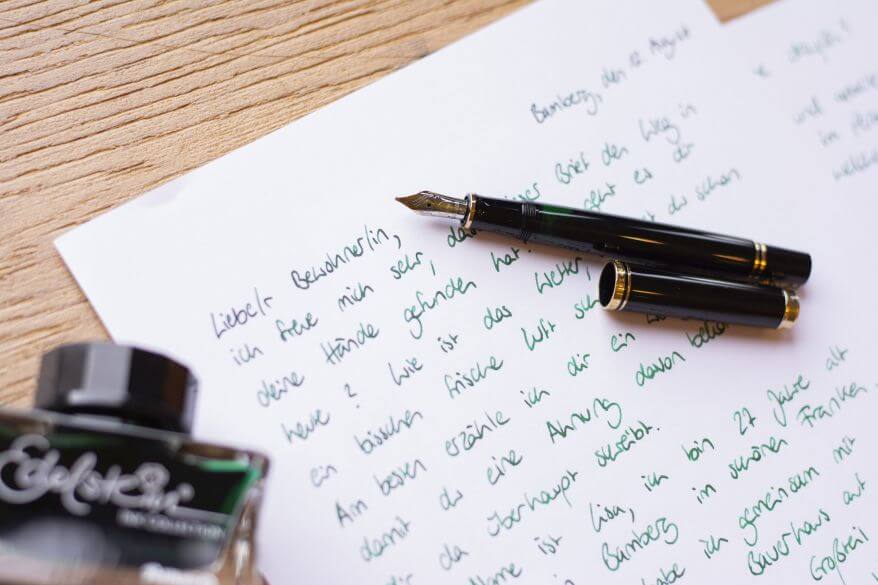 Bamberg, den 12. August
Liebe/r Bewohner/in,
ich freue mich sehr, Brief den Weg in
deine Hände gefunden hat. geht es dir
heute? Wie ist das Wetter, du schon
ein bisschen frische Luft
Am besten erzähle ich dir ein
damit du eine Ahnung davon
da überhaupt schreibt.
Name ist Lisa, ich bin 27 Jahre alt
Bamberg im schönen Franken,
ich gemeinsam mit
Bauerhaus auf
Großteil
und
im
Edelstein
INK COLLECTION